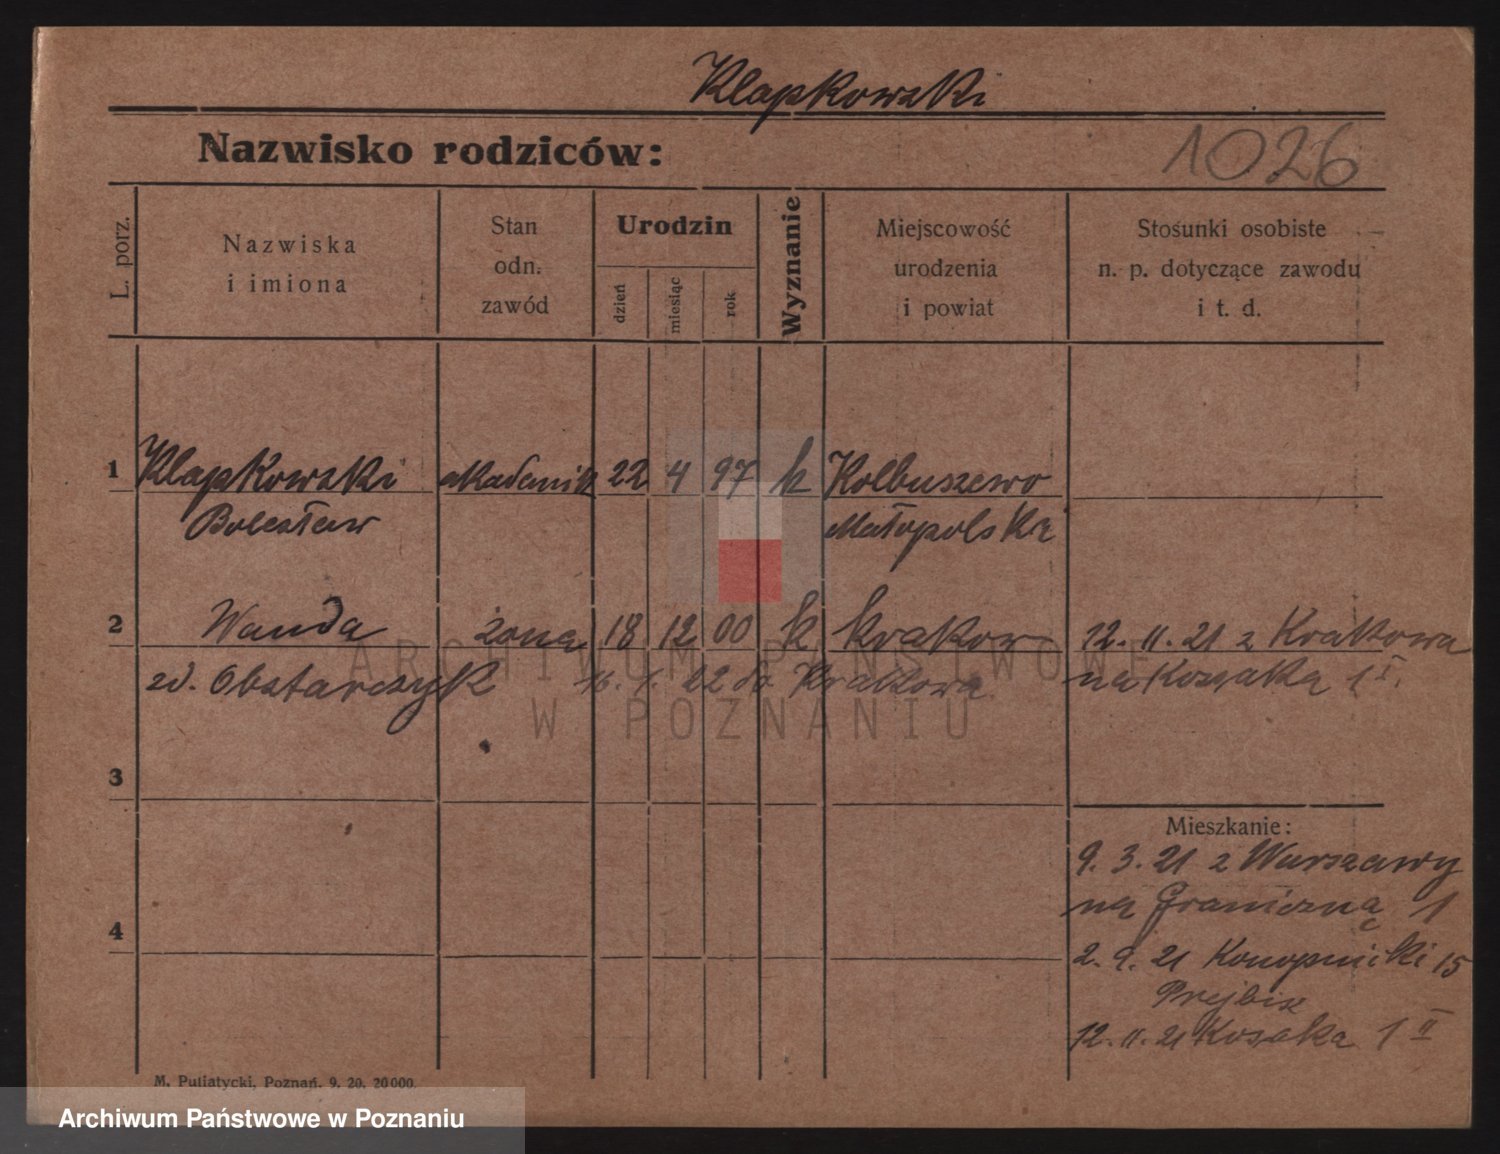 Klapkowski
Nazwisko rodziców:
1026
L. porz.
Nazwiska
i imiona
Stan
odn.
zawód
Urodzin
dzień
miesiąc
rok
Wyznanie
Miejscowość
urodzenia
i powiat
Stosunki osobiste
n. p. dotyczące zawodu
i t. d.
1 Klapkowski akademik 22 4 97 k Kolbuszewo
Bolesław Małopolska
2 Wanda żona 18 12 00 k Krakow 12. 11. 21 z Krakowa
zd. Obstarczyk 16. 1. 22 do Krakowa na Kossaka 1 I.
3
Mieszkanie:
9. 3. 21 z Warszawy
na Graniczną 1
4
2. 9. 21 Konopnicki 15
12. 11. 21 Kossaka 1 II
M. Putiatycki, Poznań. 9. 20. 20000.
ARCHIWUM PAŃSTWOWE
W POZNANIU
Archiwum Państwowe w Poznaniu